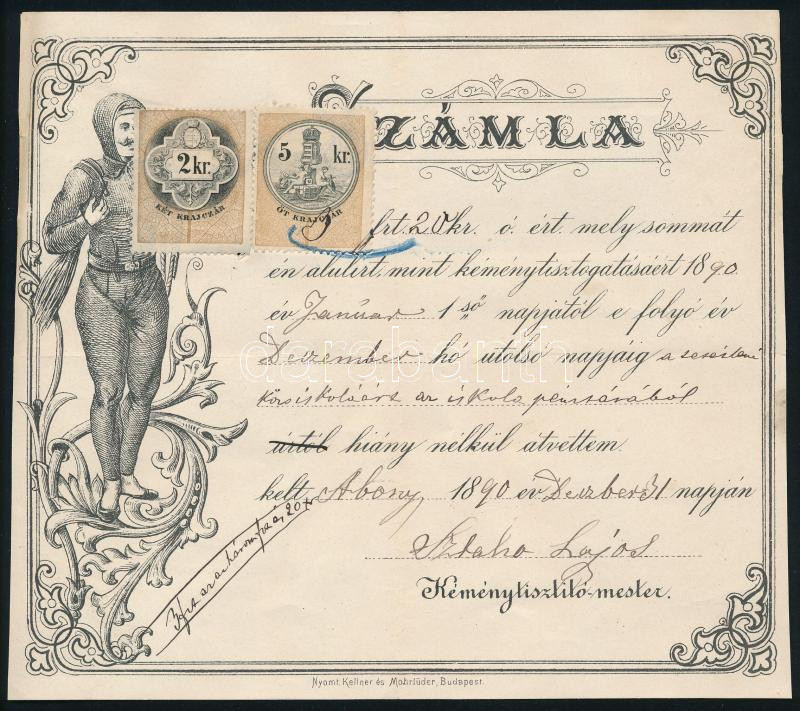 SZÁMLA
2 kr.
KÉT KRAJCZÁR
5 kr.
ÖT KRAJCZÁR
3 frt. 20 kr. ó. ért. mely sommát
én alulirt, mint kéménytisztogatásáért 1890
év Január 1 ső napjától e folyó év
Deczember hó utolso napjáig a
az iskola pénztárából
úrtól hiány nélkül átvettem.
kelt, Abony, 1890 év Deczber 31 napján
Sztaho Lajos
Kéménytisztitó-mester.
3 frt az az három frt 20 x
Nyomt. Kellner és Mohrlüder, Budapest.
darabanth